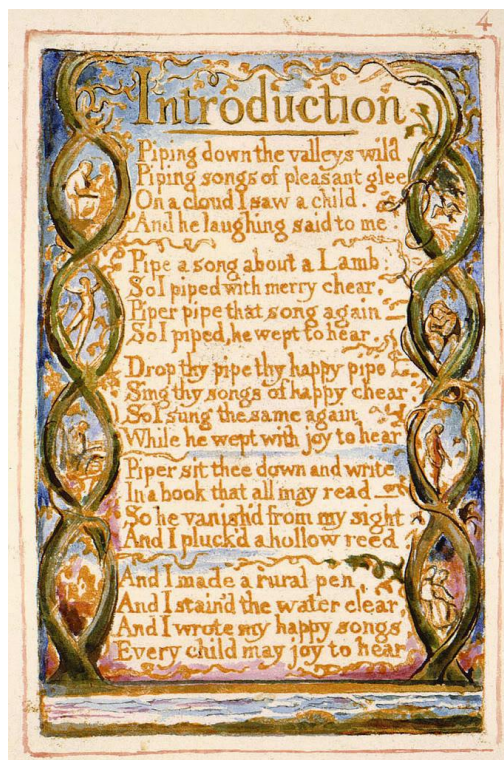 4
Introduction
Piping down the valleys wild
Piping songs of pleasant glee
On a cloud I saw a child
And he laughing said to me
Pipe a song about a Lamb
So I piped with merry chear,
Piper pipe that song again—
So I piped, he wept to hear.
Drop thy pipe thy happy pipe
Sing thy songs of happy chear
So I sung the same again
While he wept with joy to hear
Piper sit thee down and write
In a book that all may read—
So he vanish'd from my sight
And I pluck'd a hollow reed
And I made a rural pen,
And I stain'd the water clear,
And I wrote my happy songs
Every child may joy to hear